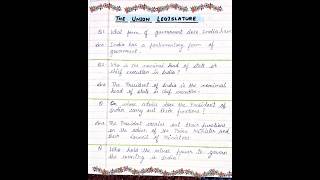 THE UNION LEGISLATURE
Q1 What form of government does India have
Ans India has a parliamentary form of government.
Q2 Who is the nominal head of state or chief executive in India?
Ans The President of India is the nominal head of state or chief executive.
Q On whose advice does the President of India carry out their functions?
Ans The President carries out their functions on the advice of the Prime Minister and their council of Ministers.
Q Who holds the actual power to govern the country in India?